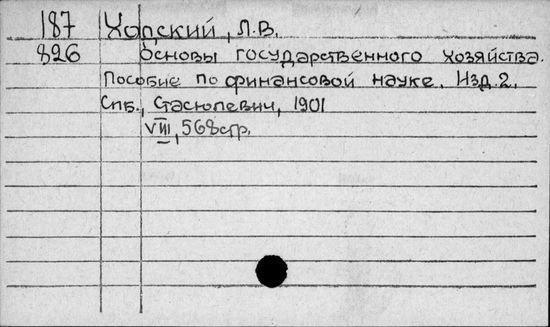 187 Ходский, Л.В.
826 Основы государственного хозяйства.
Пособие по финансовой науке. Изд. 2.
Спб., Стасюлевич, 1901
VIII, 568 стр.